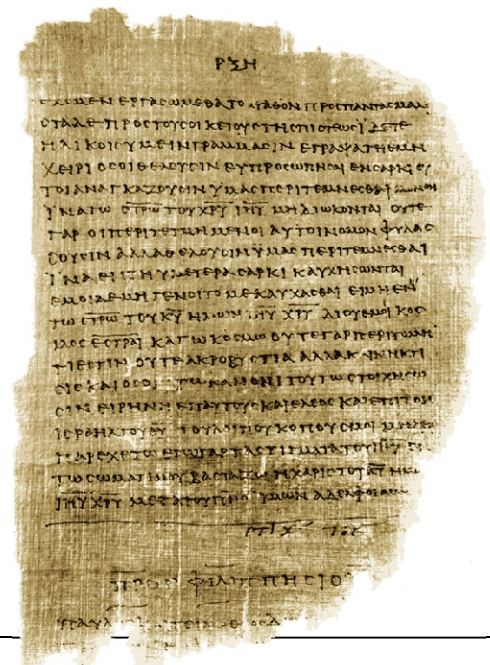 ΡΞΗ
ΕΧΟΜΕΝ ΕΡΓΑΣΩΜΕΘΑ ΤΟ ΑΓΑΘΟΝ ΠΡΟΣ ΠΑΝΤΑΣ ΜΑΛΙ
ΣΤΑ ΔΕ ΠΡΟΣ ΤΟΥΣ ΟΙΚΕΙΟΥΣ ΤΗΣ ΠΙΣΤΕΩΣ ΙΔΕΤΕ
ΗΛΙΚΟΙΣ ΥΜΕΙΝ ΓΡΑΜΜΑΣΙΝ ΕΓΡΑΨΑ ΤΗ ΕΜΗ
ΧΕΙΡΙ ΟΣΟΙ ΘΕΛΟΥΣΙΝ ΕΥΠΡΟΣΩΠΗΣΑΙ ΕΝ ΣΑΡΚΙ ΟΥ
ΤΟΙ ΑΝΑΓΚΑΖΟΥΣΙΝ ΥΜΑΣ ΠΕΡΙΤΕΜΝΕΣΘΑΙ ΜΟΝΟΝ
ΙΝΑ ΤΩ ΣΤΡΩ ΤΟΥ ΧΡΥ ΙΗΥ ΜΗ ΔΙΩΚΟΝΤΑΙ ΟΥΤΕ
ΓΑΡ ΟΙ ΠΕΡΙΤΕΤΜΗΜΕΝΟΙ ΑΥΤΟΙ ΝΟΜΟΝ ΦΥΛΑΣ
ΣΟΥΣΙΝ ΑΛΛΑ ΘΕΛΟΥΣΙΝ ΥΜΑΣ ΠΕΡΙΤΕΜΝΕΣΘΑΙ
ΙΝΑ ΕΝ ΤΗ ΥΜΕΤΕΡΑ ΣΑΡΚΙ ΚΑΥΧΗΣΩΝΤΑΙ
ΕΜΟΙ ΔΕ ΜΗ ΓΕΝΟΙΤΟ ΜΕ ΚΑΥΧΑΣΘΑΙ ΕΙ ΜΗ ΕΝ
ΤΩ ΣΤΡΩ ΤΟΥ ΚΥ ΗΜΩΝ ΙΗΥ ΧΡΥ ΔΙ ΟΥ ΕΜΟΙ ΚΟΣ
ΜΟΣ ΕΣΤΡΑΙ ΚΑΓΩ ΚΟΣΜΩ ΟΥΤΕ ΓΑΡ ΠΕΡΙΤΟΜΗ
ΤΙ ΕΣΤΙΝ ΟΥΤΕ ΑΚΡΟΒΥΣΤΙΑ ΑΛΛΑ ΚΑΙΝΗ ΚΤΙ
ΣΙΣ ΚΑΙ ΟΣΟΙ ΤΩ ΚΑΝΟΝΙ ΤΟΥΤΩ ΣΤΟΙΧΗΣΩ
ΣΙΝ ΕΙΡΗΝΗ ΕΠ ΑΥΤΟΥΣ ΚΑΙ ΕΛΕΟΣ ΚΑΙ ΕΠΙ ΤΟΝ
ΙΣΡΑΗΛ ΤΟΥ ΘΥ ΤΟΥ ΛΟΙΠΟΥ ΚΟΠΟΥΣ ΜΟΙ
ΠΑΡΕΧΕΤΩ ΕΓΩ ΓΑΡ ΤΑ ΣΤΙΓΜΑΤΑ ΤΟΥ ΙΗΥ ΕΝ
ΤΩ ΣΩΜΑΤΙ ΜΟΥ ΒΑΣΤΑΖΩ Η ΧΑΡΙΣ ΤΟΥ ΚΥ ΗΜΩ
ΙΗΥ ΧΡΥ ΜΕΤΑ ΤΟΥ ΠΝΣ ΥΜΩΝ ΑΔΕΛΦΟΙ ΑΜΗΝ
ΣΤΙΧ ΤΟΕ
ΠΡΟΣ ΦΙΛΙΠΠΗΣΙΟ
ΠΑΥΛ